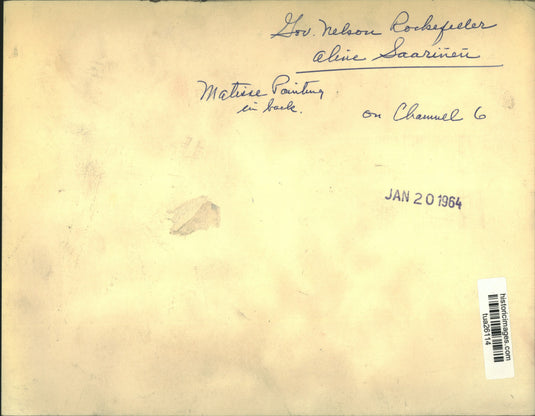 Gov. Nelson Rockefeller
Aline Saarinen
Matisse Painting
in back.
on Channel 6
JAN 20 1964
historicimages.com
tua26114